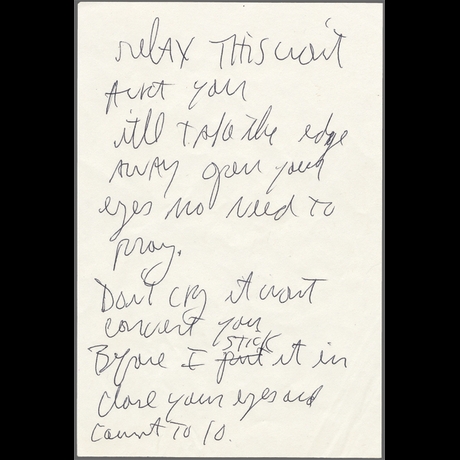 relax This won't
Hurt you
it'll take the edge
away open your
eyes no need to
pray.
Don't cry it won't
convert you
Before I put stick it in
close your eyes and
count to 10.